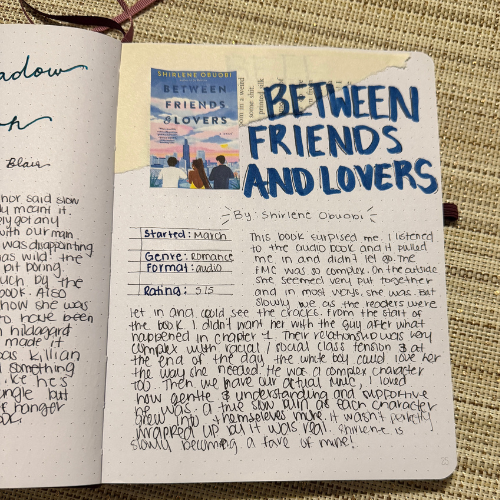 adow
Blair
hor said slow
ly meant it.
ery got any
with our main
was disappointing
as wild! the
pit boring.
uch by the
book. Also
how she was
to have been
n hildagard
made it
as Killian
something
ke he's
ngle but
hanger
SHIRLENE OBUOBI
BETWEEN
FRIENDS
& LOVERS
pom in a weird
some shit.
printed silk
BETWEEN
FRIENDS
AND LOVERS
By: Shirlene Obuobi
Started: March
Genre: Romance
Format: audio
Rating: 5/5
This book surprised me. I listened
to the audio book and it pulled
me in and didn't let go. The
FMC was so complex. On the outside
she seemed very put together
and in most ways, she was. But
slowly we as the readers were
let in and could see the cracks. From the start of
the book I didn't want her with the guy after what
happened in chapter 1. Their relationship was very
complex with racial / social class tension & at
the end of the day the white boy could love her
the way she needed. He was a complex character
too. Then we have our actual MMC, I loved
how gentle & understanding and supportive
he was. a true slow burn as each character
grew into themselves more. It wasn't perfectly
wrapped up but it was real. Shirlene is
slowly becoming a fave of mine!